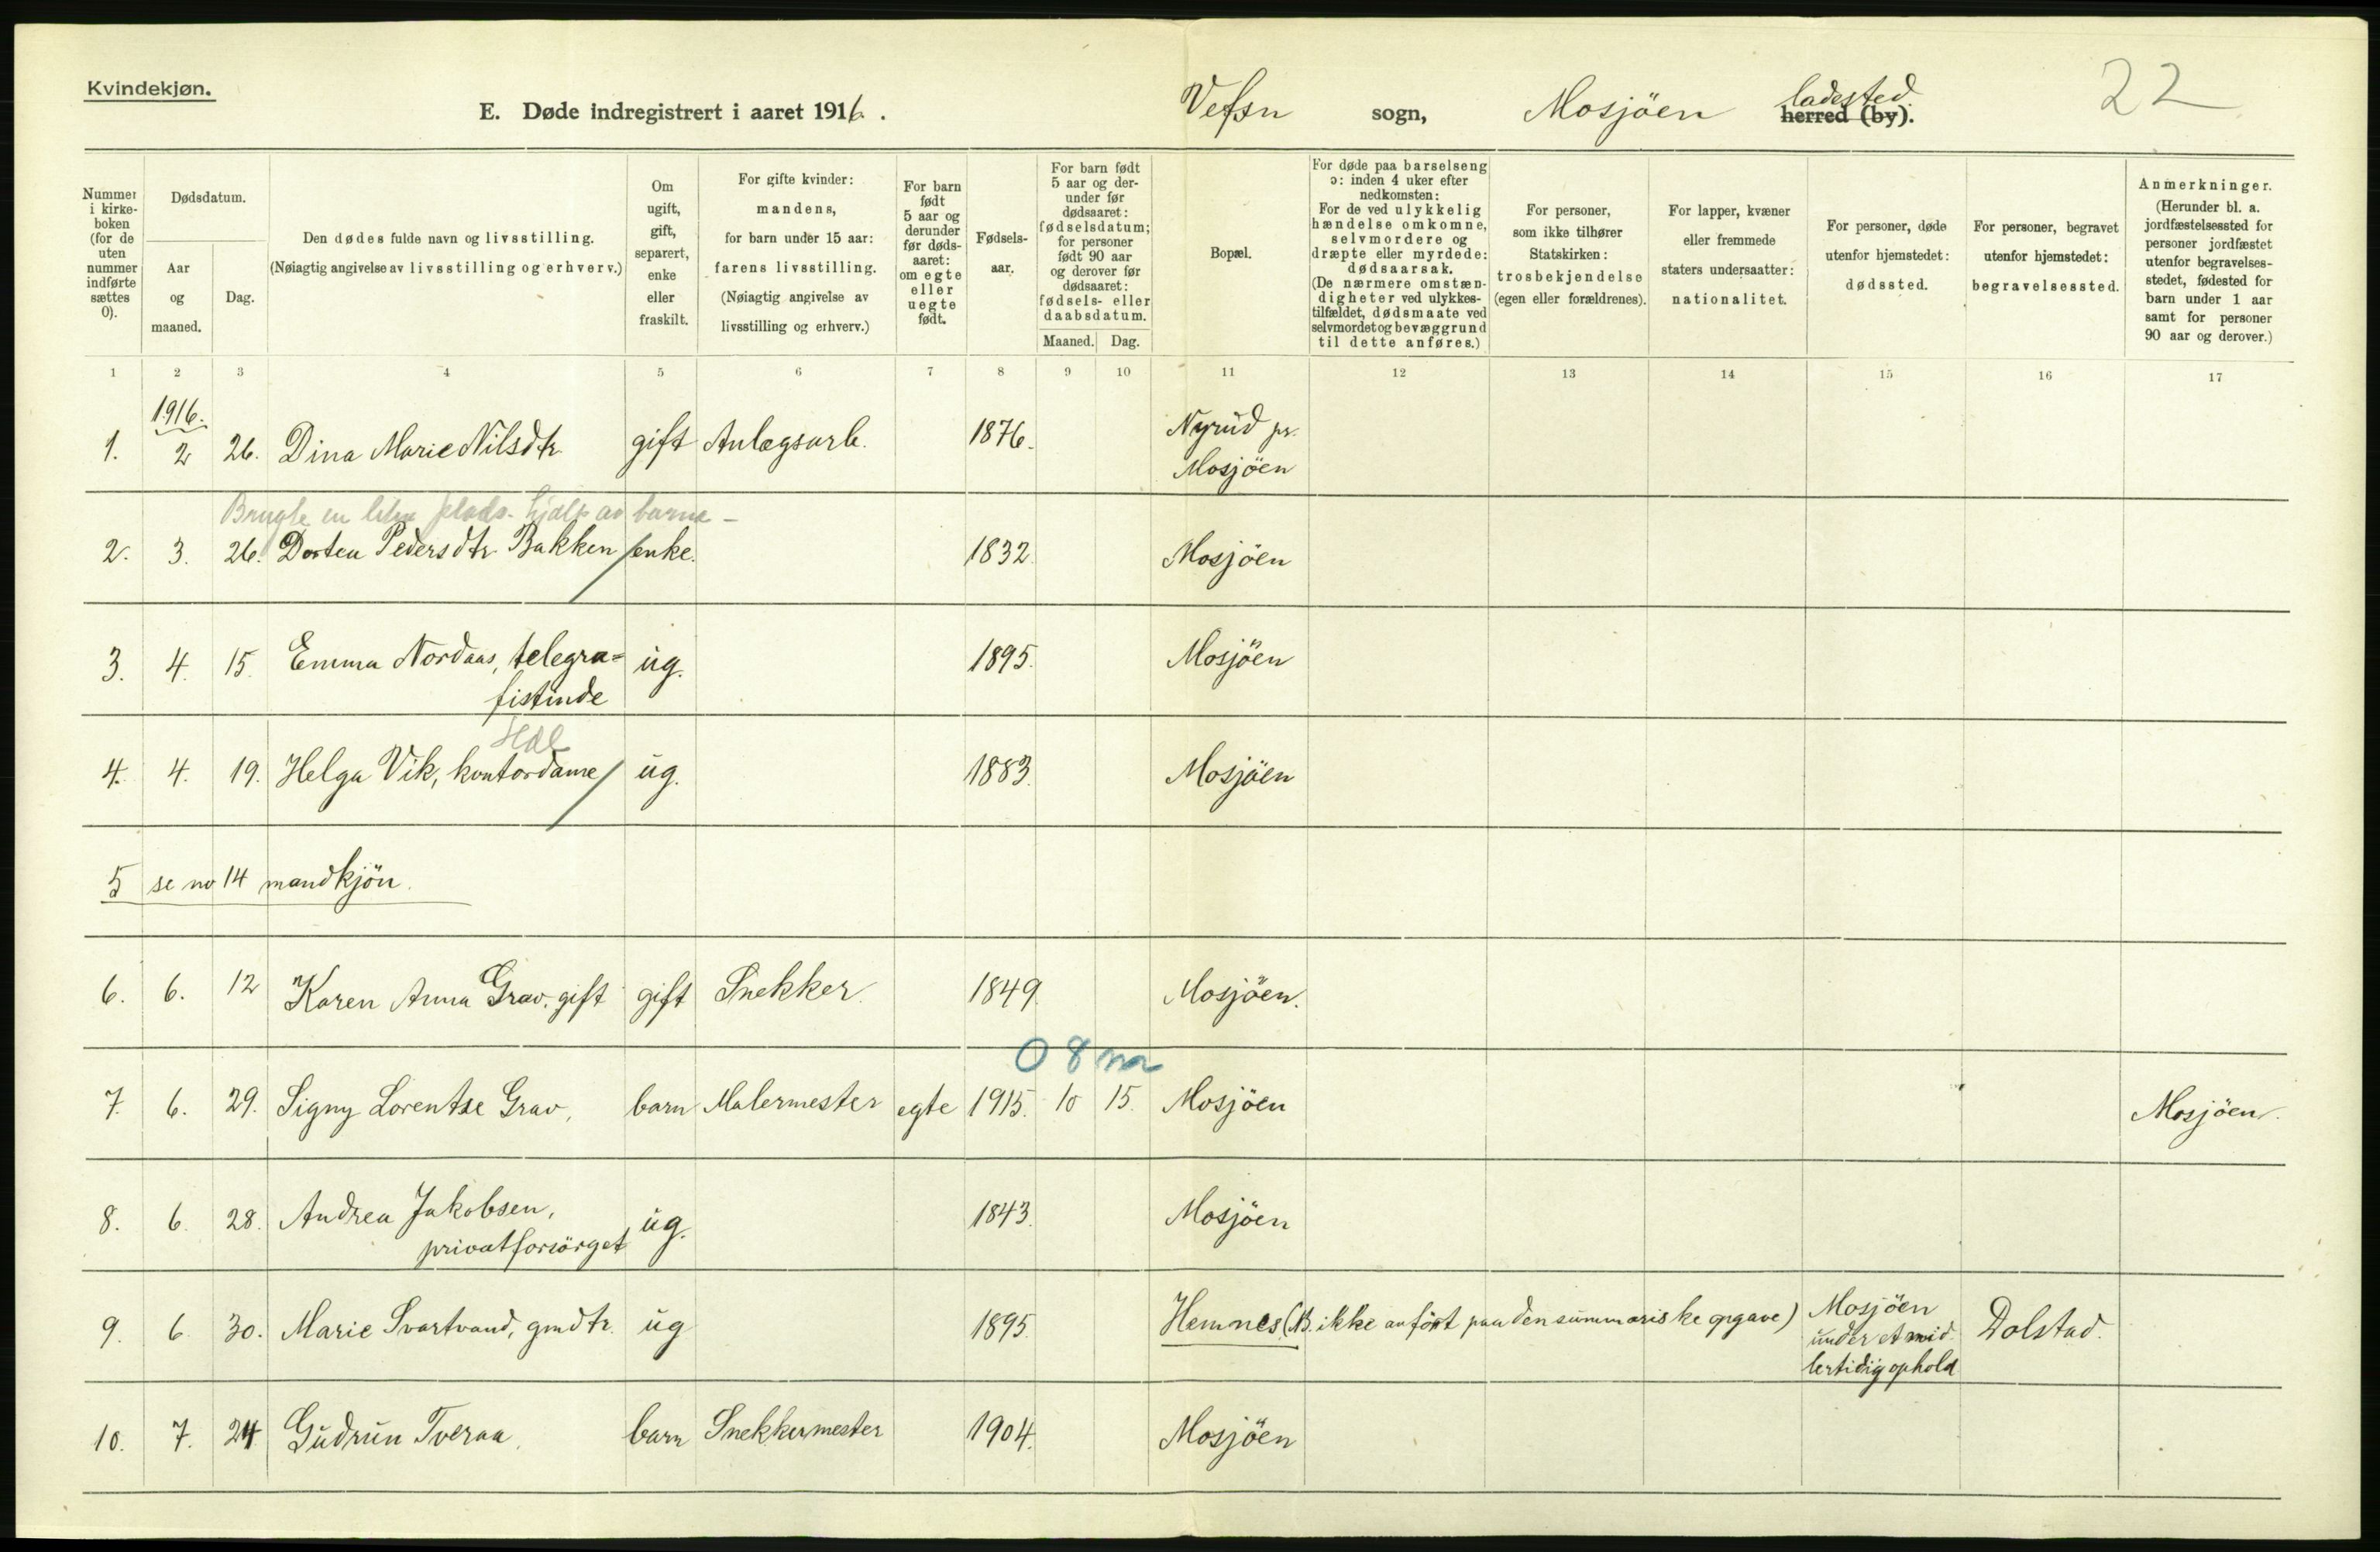 Kvindekjøn.
E. Døde indregistrert i aaret 1916.
Vefsn sogn, Mosjöen ladested. herred (by).
22
Nummer i kirke-boken (for de uten nummer indførte sættes 0).
Dødsdatum.
Aar og maaned.
Dag.
Den dødes fulde navn og livsstilling.
(Nøiagtig angivelse av livsstilling og erhverv.)
Om ugift, gift, separert, enke eller fraskilt.
For gifte kvinder: mandens, for barn under 15 aar: farens livsstilling. (Nøiagtig angivelse av livsstilling og erhverv.)
For barn født 5 aar og derunder før døds-aaret: om egte eller uegte født.
Fødsels-aar.
For barn født 5 aar og der-under før dødsaaret: fødselsdatum; for personer født 90 aar og derover før dødsaaret: fødsels- eller daabsdatum.
Maaned. Dag.
Bopæl.
For døde paa barselseng ɔ: inden 4 uker efter nedkomsten: For de ved ulykkelig hændelse omkomne, selvmordere og dræpte eller myrdede: dødsaarsak. (De nærmere omstæn-digheter ved ulykkes-tilfældet, dødsmaate ved selvmordet og bevæggrund til dette anføres.)
For personer, som ikke tilhører Statskirken: trosbekjendelse (egen eller forældrenes).
For lapper, kvæner eller fremmede staters undersaatter: nationalitet.
For personer, døde utenfor hjemstedet: dødssted.
For personer, begravet utenfor hjemstedet: begravelsessted.
Anmerkninger. (Herunder bl. a. jordfæstelsessted for personer jordfæstet utenfor begravelses-stedet, fødested for barn under 1 aar samt for personer 90 aar og derover.)
1 2 3 4 5 6 7 8 9 10 11 12 13 14 15 16 17
1916.
1. 2 26. Dina Marie Nilsdtr. gift Anlægsarb. 1876. Nyrud pr.
Mosjöen
Brugte en liten plads. hjælp av barna –
2. 3. 26. Dortea Pedersdtr. Bakken enke. 1832. Mosjöen
3. 4. 15. Emma Nordaas, telegra= ug. 1895. Mosjöen
fistinde
4. 4. 19. Helga Vik, kontordame ug. 1883. Mosjöen
5 se no 14 mandkjön.
6. 6. 12 Karen Anna Grav, gift gift Snekker. 1849. Mosjöen.
0 8
7. 6. 29. Signy Lorentse Grav, barn Malermester egte 1915. 10 15. Mosjöen Mosjöen.
8. 6. 28. Andrea Jakobsen, ug. 1843. Mosjöen
privatforsörget
9. 6. 30. Marie Svartvand, gmdtr. ug 1895. Hemnes (NB. ikke anfört paa den summariske opgave) Mosjöen Dolstad.
under et mid
lertidig ophold
10. 7. 24 Gudrun Tveraa, barn Snekkermester 1904. Mosjöen